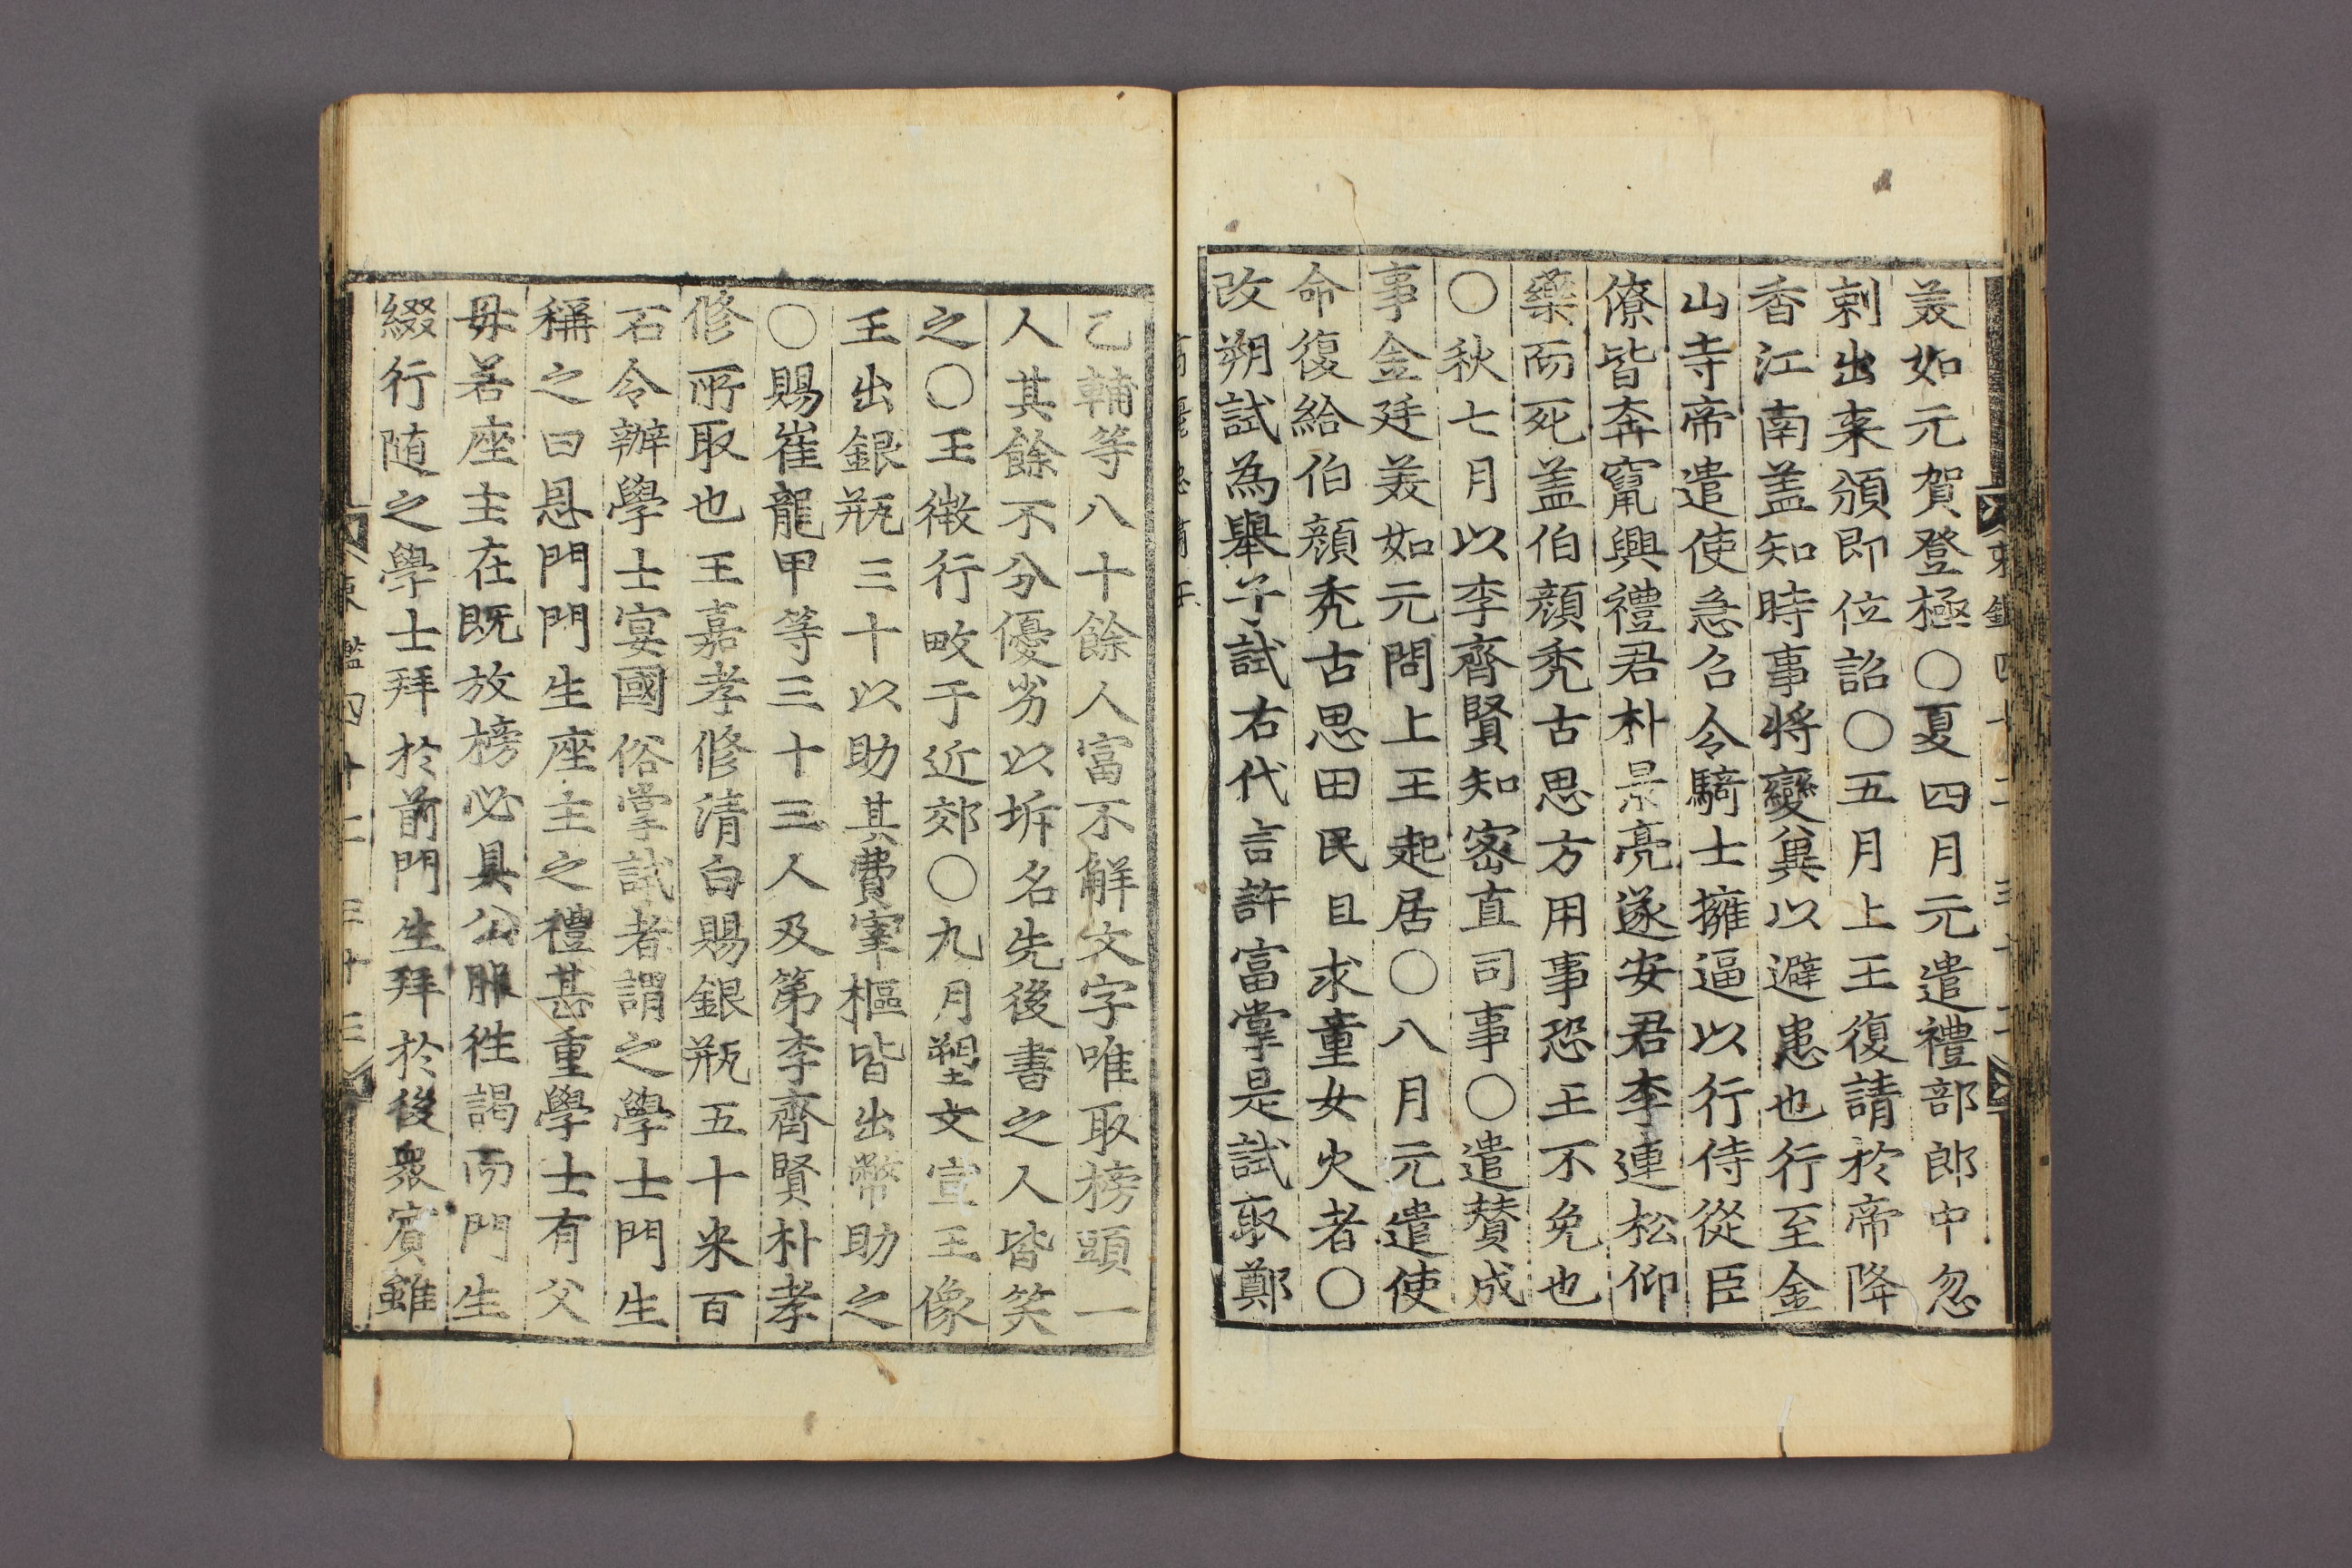 羙如元賀登極○夏四月元遣禮部郎中忽
剌出来頒即位詔○五月上王復請於帝降
香江南盖知時事將變兾以避患也行至金
山寺帝遣使急召令騎士擁逼以行侍從臣
僚皆奔竄興禮君朴景亮遂安君李連松仰
藥而死盖伯顔秃古思方用事恐王不免也
○秋七月以李齊賢知密直司事○遣賛成
事金廷羙如元問上王起居○八月元遣使
命復給伯顔秃古思田民且求童女火者○
改朔試為舉子試右代言許富掌是試取鄭
乙輔等八十餘人富不解文字唯取榜頭一
人其餘不分優劣以坼名先後書之人皆笑
之○王微行畋于近郊○九月塑文宣王像
王出銀瓶三十以助其費宰樞皆出幣助之
○賜崔龍甲等三十三人及第李齊賢朴孝
修所取也王嘉孝修清白賜銀瓶五十米百
石令辦學士宴國俗掌試者謂之學士門生
稱之曰恩門門生座主之禮甚重學士有父
母若座主在既放榜必具公服徃謁而門生
綴行随之學士拜於前門生拜於後衆賓雖
東鑑四十二 三十三